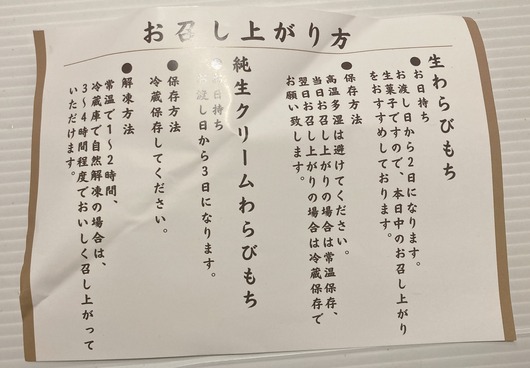 お召し上がり方
生わらびもち
●お日持ち
お渡し日から2日になります。
生菓子ですので、本日中のお召し上がり
をおすすめしております。
●保存方法
高温多湿は避けてください。
当日お召し上がりの場合は常温保存、
翌日お召し上がりの場合は冷蔵保存で
お願い致します。
純生クリームわらびもち
お日持ち
お渡し日から3日になります。
●保存方法
冷蔵保存してください。
●解凍方法
常温で1〜2時間、
冷蔵庫で自然解凍の場合は、
3〜4時間程度でおいしく召し上がって
いただけます。